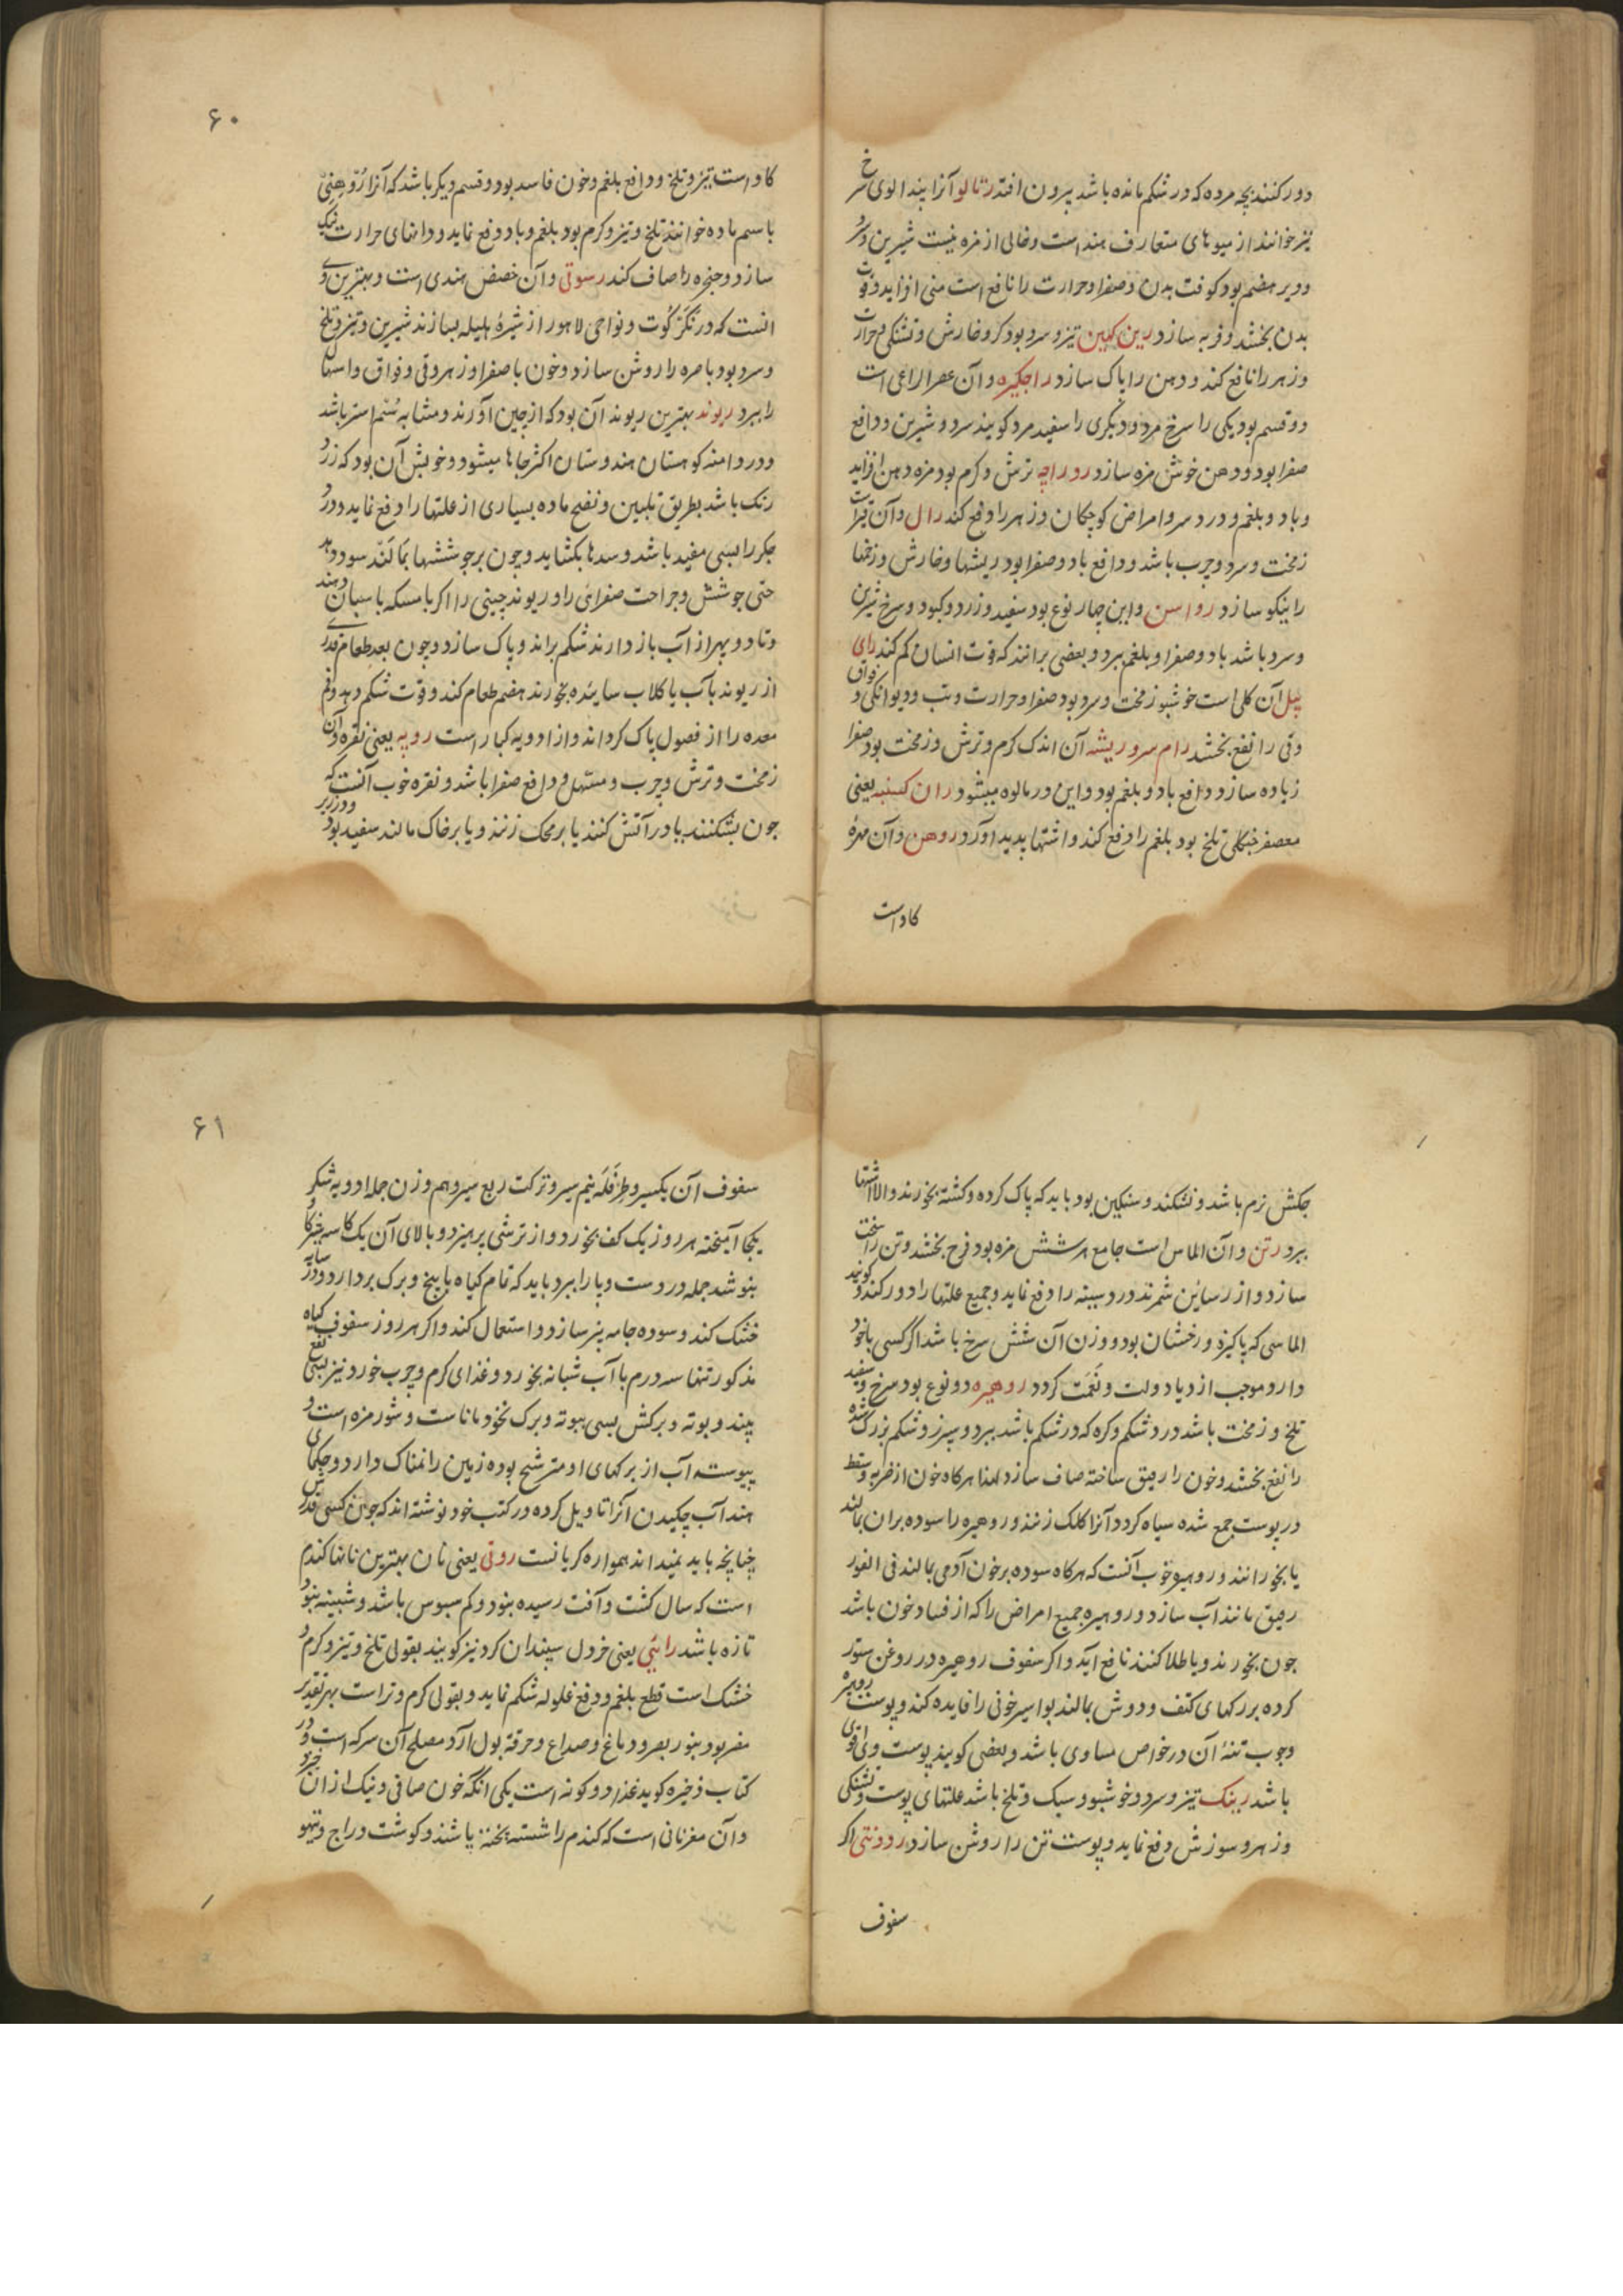 دور کنند بچه مرده که در شکم مانده باشد بیرون افتد رتالو آنرا پندالوی سرخ
نیز خوانند از میوهای متعارف هند است و خالی از مزه نیست شیرین و سرد
و دیر هضم بود کوفت بدن و صفرا و حرارت را نافع است منی افزاید و قوت
بدن بخشد و فربه سازد رین کهین تیز و سرد بود کر و خارش و تشنکی و حرارت
و زهر را نافع کند و دهن را پاک سازد راجکیره و آن عصر الراعی است
دو قسم بود یکی را سرخ مرد و دیکری را سفید مرد کویند سرد و شیرین و دافع
صفرا بود و دهن خوش مزه سازد رو راچه ترش و کرم بود مزه دهن افزاید
و باد و بلغم و درد سر و امراض کوچکان و زهر را دفع کند رال و آن قیرات
زمخت و سرد و چرب باشد و دافع باد و صفرا بود ریشها و خارش و زخمها
را نیکو سازد رواسن و این چهار نوع بود سفید و زرد و کبود و سرخ شیرین
و سرد باشد باد و صفرا و بلغم ببرد و بعضی برانند که قوت انسان کم کند رای
پیل آن کلی است خوشبو زمخت و سرد بود صفرا و حرارت و تب و دیوانکی و فواق
و قی را نفع بخشد رام سر و ریشه آن اندک کرم و ترش و زمخت بود صفرا
زیاده سازد و دافع باد و بلغم بود و این در مالوه میشود ران کسنبه یعنی
معصفر جنکلی تلخ بود بلغم را دفع کند و اشتها پدید آورد روهن و آن مهرهٔ
کاو است
۶۰
کاو است تیز و تلخ و دافع بلغم و خون فاسد بود و قسم دیکر باشد که آنرا
باسم ماده خوانند تلخ و تیز و کرم بود بلغم و باد دفع نماید و دانهای حرارت
سازد و حنجره را صاف کند رسوتی و آن خضض هندی است و بهترین وی
انست که در نکرکوت و نواحی لاهور از شیرهٔ هلیله بسازند شیرین و تیز و تلخ
و سرد بود باصره را روشن سازد و خون با صفرا و زهر و قی و فواق و اسهال
را ببرد ریوند بهترین ریوند آن بود که از چین آورند و مشابه سم استر باشد
و در دامنه کوهستان هندوستان اکثر جاها میشود و خوبش آن بود که زرد
رنک باشد بطریق تلیین و نضج ماده بسیاری از علتها را دفع نماید و درد
جکر را بسی مفید باشد و سدها بکشاید و چون بر جوششها بمالند سود دهد
حتی جوشش و جراحت صفرائی را و ریوند چینی را اکر با مسکه باسبان دهند
و تا دو پهر از آب باز دارند شکم براند و پاک سازد و چون بعد طعام قدری
از ریوند بآب یا کلاب سائیده بخورند هضم طعام کند و قوت شکم دهد و فم
معده را از فضول پاک کرداند و از ادویه کبار است روپه یعنی نقره و آن
زمخت و ترش و چرب و مسهل و دافع صفرا باشد و نقره خوب آنست که
چون بشکنند یا در آتش کنند یا بر محک زنند و یا بر خاک مالند سفید بود و در زیر
چکش نرم باشد و نشکند و سنکین بود باید که پاک کرده و کشته بخورند و الا اشتها
ببرد رتن و آن الماس است جامع هر شش مزه بود فرح بخشد و تن را سخت
سازد و از رساین شمرند درد سینه را دفع نماید و جمیع علتها را دور کند و کویند
الماسی که پاکیزه و رخشان بود و وزن آن شش سرخ باشد اگر کسی با خود
دارد موجب ازدیاد دولت و نعمت کردد روهیره دو نوع بود سرخ و سفید
تلخ و زمخت باشد درد شکم و کره که در شکم باشد ببرد و سپرز و شکم بزرک شده
را نفع بخشد و خون را رقیق ساخته صاف سازد لهذا هرکاه خون از ضربه و سقط
در پوست جمع شده سیاه کردد آنرا کلک زنند و روهیره را سوده بران بمالند
یا بخورانند و روهیره خوب آنست که هرکاه سوده بر خون آدمی بمالند فی الفور
رقیق مانند آب سازد و روهیره جمیع امراض را که از فساد خون باشد
چون بخورند و یا طلا کنند نافع آید و اکر سفوف روهیره در روغن ستور
کرده بر رکهای کتف و دوش بمالند بواسیر خونی را فایده کند و پوست روهیره
و چوب تنهٔ آن در خواص مساوی باشد و بعضی کویند پوست وی اقوی
باشد رینک تیز و سرد و خوشبو و سبک و تلخ باشد علتهای پوست و تشنکی
و زهر و سوزش دفع نماید و پوست تن را روشن سازد رودنتی اکر
سفوف
۶۱
سفوف آن یکسیر و طرفله نیم سیر و ترکت ربع سیر و هم وزن جمله ادویه شکر
یکجا آمیخته هر روز یک کف بخورد و از ترشی پرهیزد و بالای آن یک کاسه شیر کاو
بنوشد جمله درد دست و پا را ببرد باید که تمام کیاه با بیخ و برک بردارد و در سایه
خشک کند و سوده جامه بیز سازد و استعمال کند و اکر هر روز سفوف کیاه
مذکور تنها سه درم با آب شبانه بخورد و غذای کرم و چرب خورد نیز بسی نفع
بیند و بوته و برکش بسی ببوته و برک نخود ماناست و شور مزه است و
پیوسته آب از برکهای او مترشح بوده زمین را نمناک دارد و حکمای
هند آب چکیدن آنرا تاویل کرده در کتب خود نوشته اند که چون کسی قدرش
چنانچه باید نمیداند همواره کریانست روتی یعنی نان بهترین نانها کندم
است که سال کشت و آفت رسیده نبود و کم سبوس باشد و شبینه نبود
تازه باشد رائی یعنی خردل سپندان کرد نیز کویند بقولی تلخ و تیز و کرم و
خشک است قطع بلغم و دفع غلوله شکم نماید و بقولی کرم و تر است بهر تقدیر
مضر بود بنور بصر و دماغ و صداع و حرقة بول آرد مصلح آن سرکه است و در
کتاب ذخیره کوید غذا دو کونه است یکی انکه خون صافی و نیک از ان خیزد
و آن مغز نانی است که کندم را شسته پخته باشند و کوشت دراج و تیهو